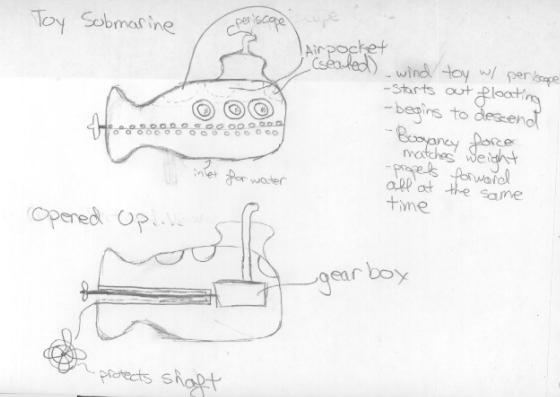 Toy Submarine
periscope
Airpocket
(sealed)
- wind toy w/ periscope
- starts out floating
- begins to descend
- Buoyancy force
matches weight
- propels forward
all at the same
time
inlet for water
Opened Up...
gear box
protects shaft